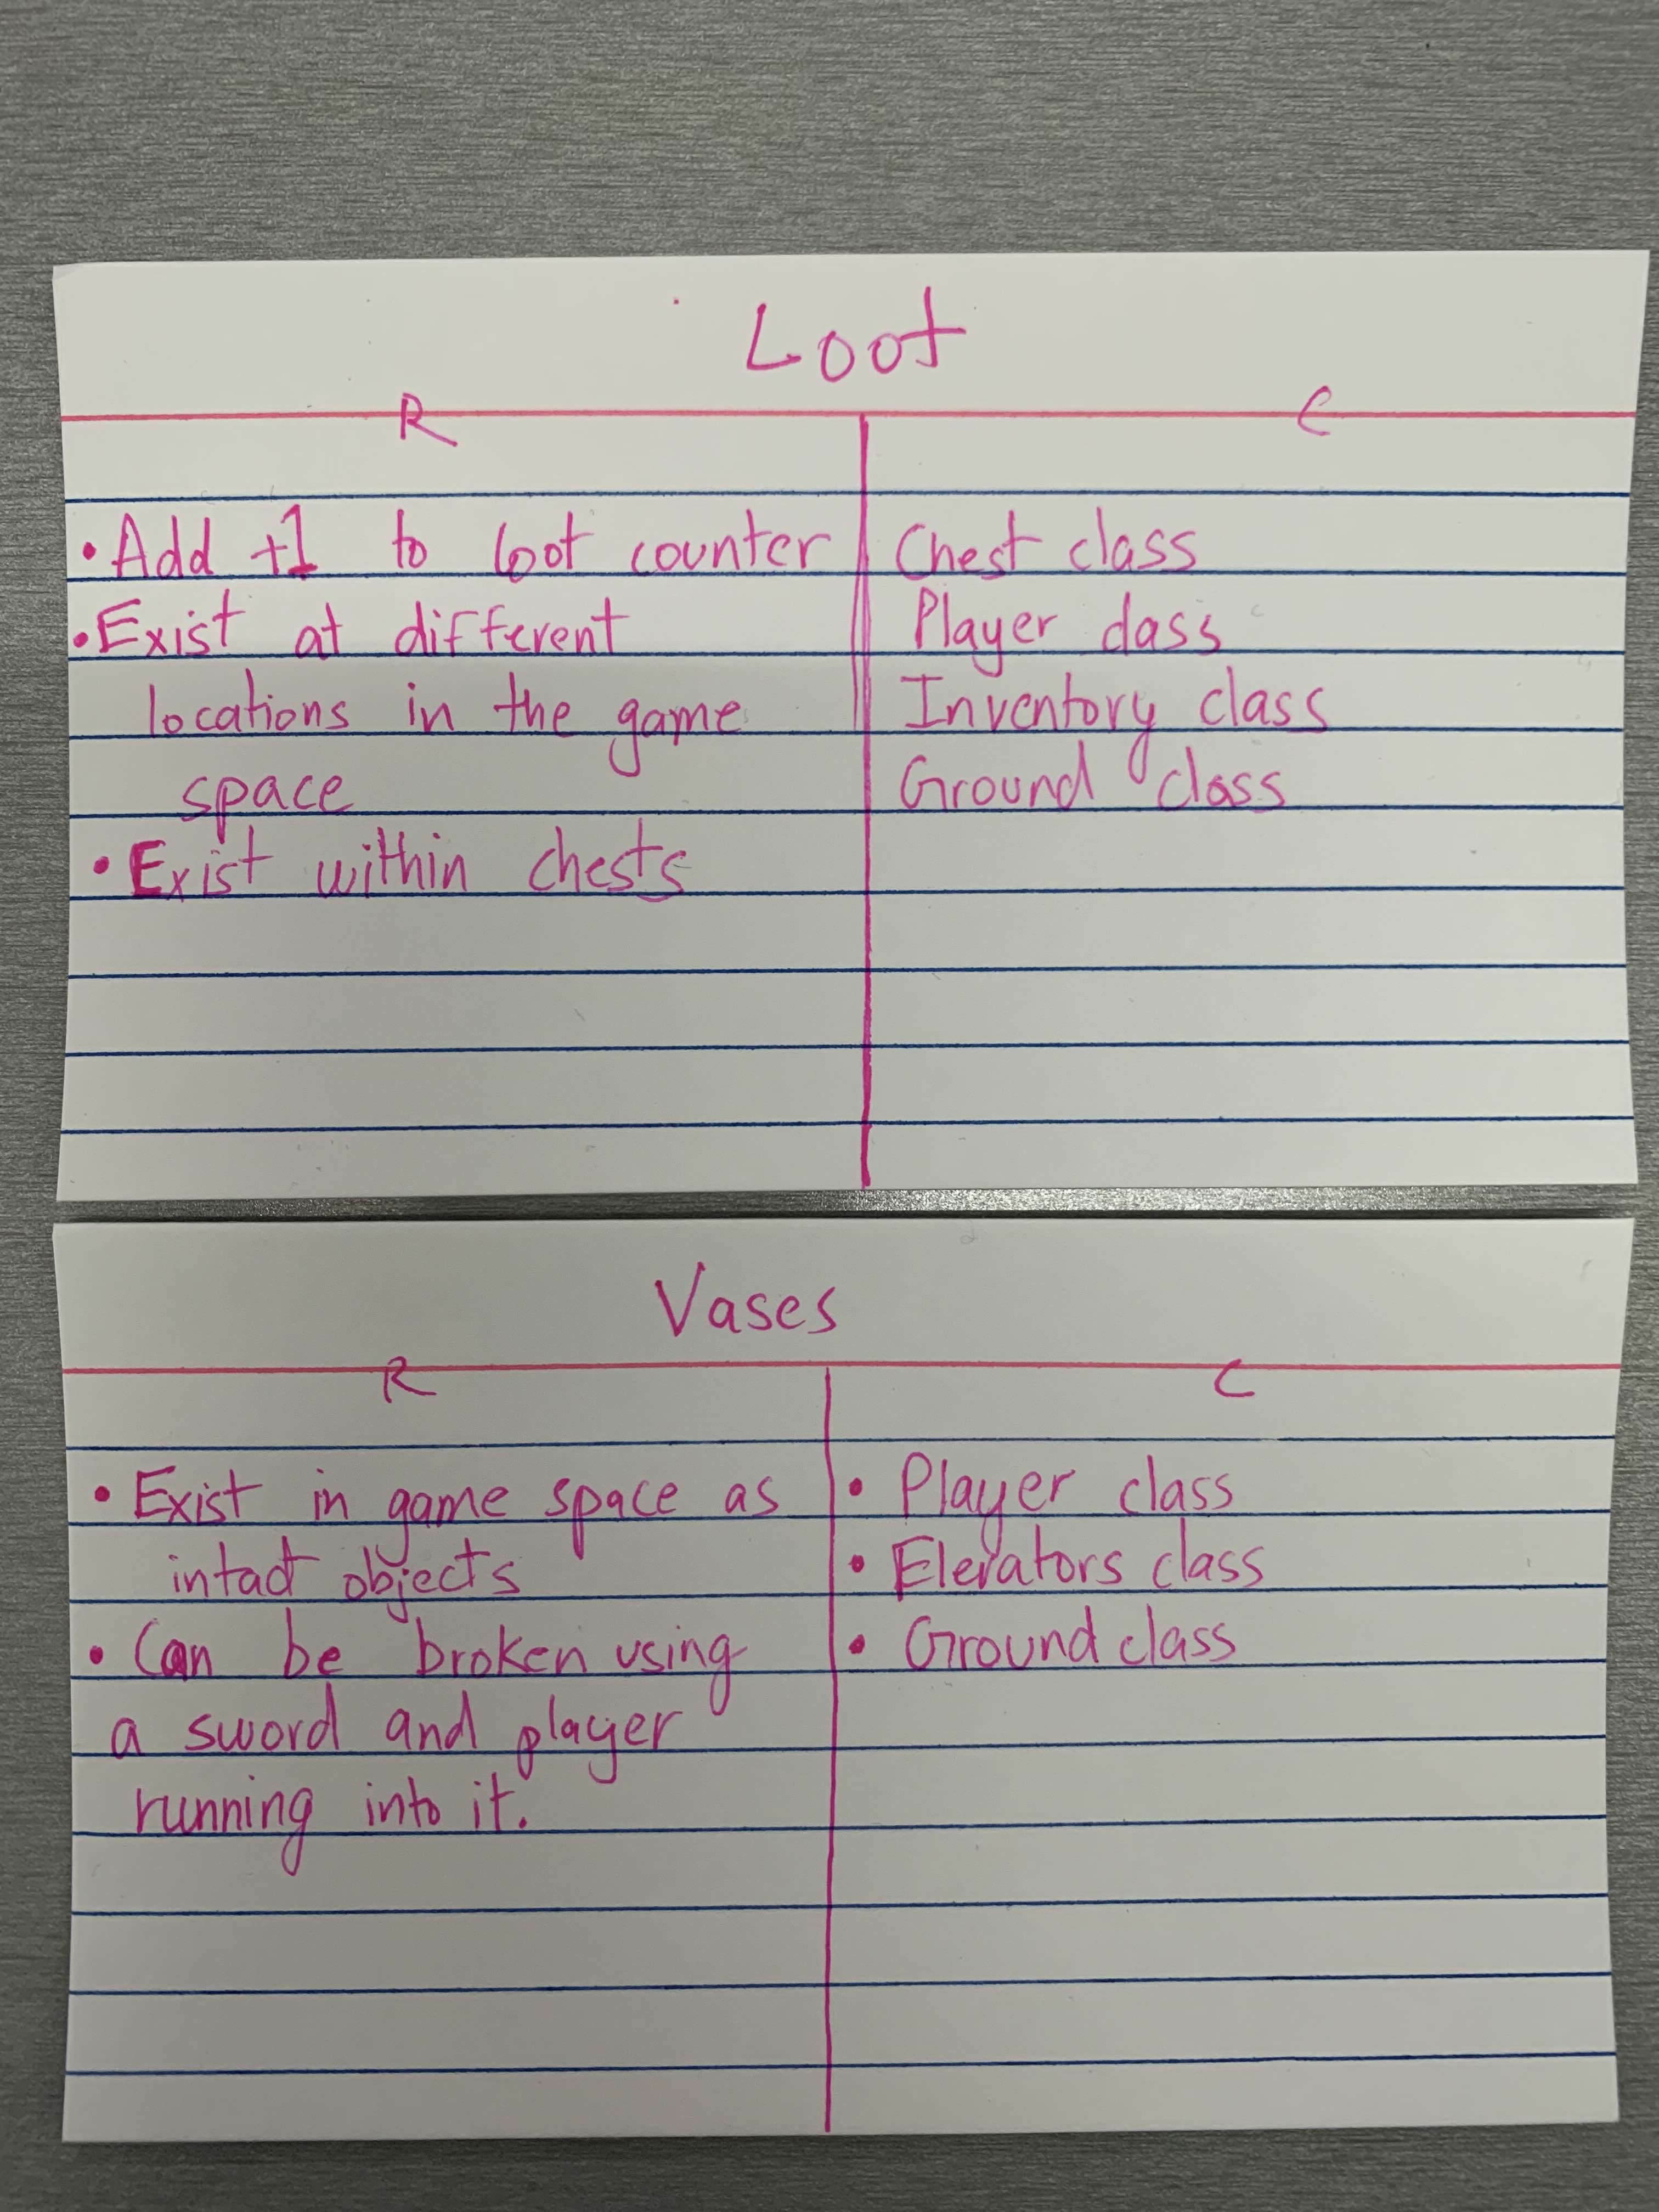 Loot
R
C
• Add +1 to loot counter
• Exist at different
locations in the game
space
• Exist within chests
Chest class
Player class
Inventory class
Ground class
Vases
R
C
• Exist in game space as
intact objects
• Can be broken using
a sword and player
running into it.
• Player class
• Elevators class
• Ground class